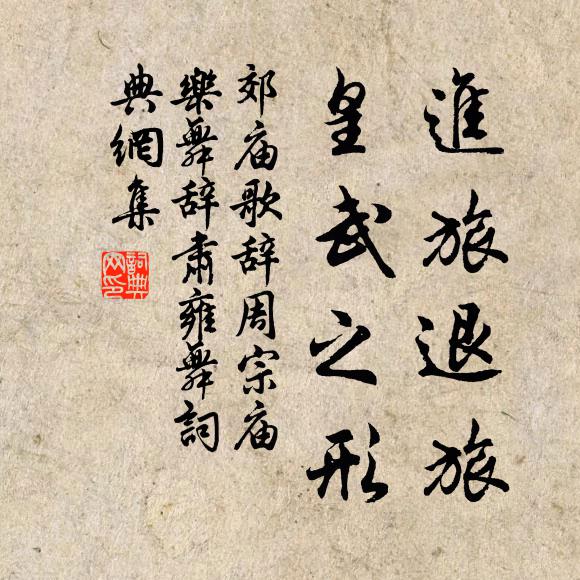 進旅退旅
皇武之形
郊庙歌辞周宗庙
樂舞辞肅雍舞詞
典網集
詞典
网印